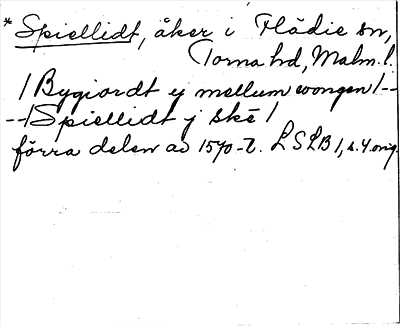 * Spiellidt, åker i Flädie sn,
Torna hd, Malm. l.
/ Bygiordt ej mellum wongen / --
-- / Spiellidt j skē /
förra delen av 1570-t. LSLB 1, s. 4 orig.